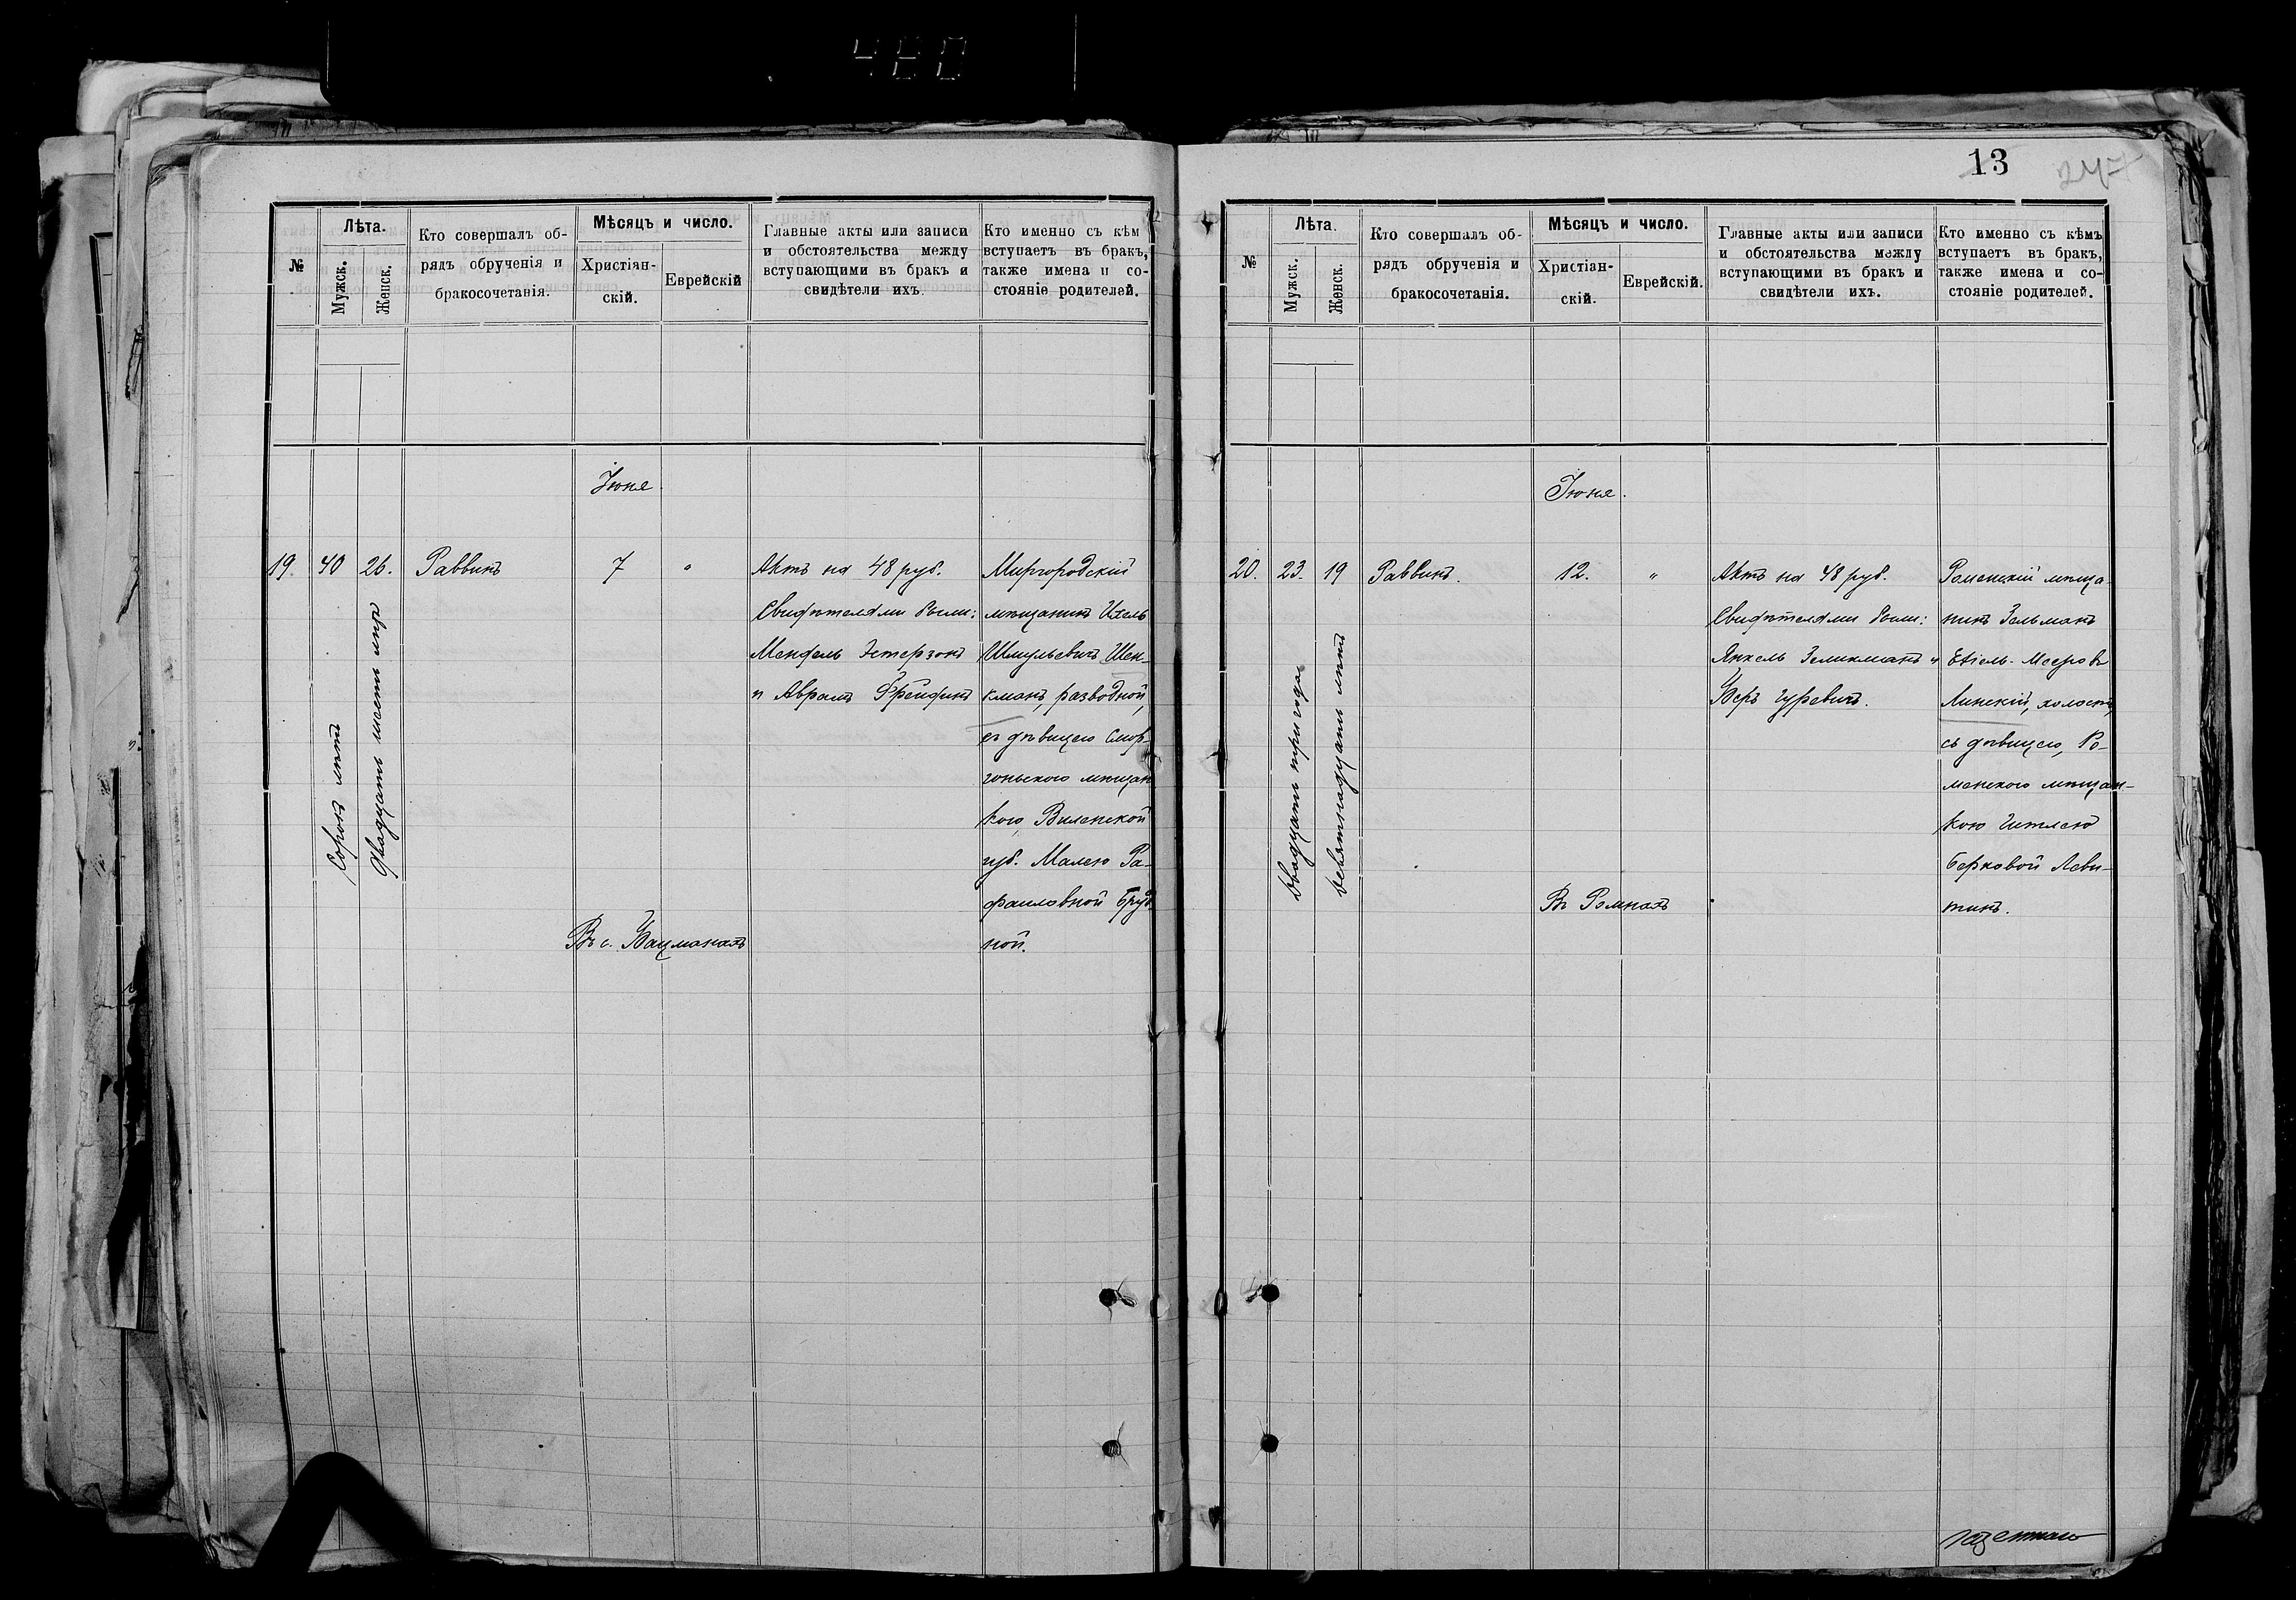 480
№
Лѣта.
Мужск.
Женск.
Кто совершалъ об-
рядъ обрученія и
бракосочетанія.
Мѣсяцъ и число.
Христіан-
скій.
Еврейскій
Главные акты или записи
и обстоятельства между
вступающими въ бракъ и
свидѣтели ихъ.
Кто именно съ кѣм
вступаетъ въ бракъ,
также имена и со-
стояніе родителей.
Іюня
19.
40
26.
Сорокъ лѣтъ
Двадцать шесть лѣтъ
Раввинъ
7
"
Въ с.
Актъ на 48 руб.
Свидѣтелями были:
Мендель Эстерзонъ
и Авраамъ
Миргородскій
мѣщанинъ
Шмульевичъ Шен-
кманъ, разводной,
съ дѣвицею Смор-
гоньского мѣщан
кого Виленской
губ. Малею Ра-
фаиловной Бруд
ной.
13
247
№
Лѣта.
Мужск.
Женск.
Кто совершалъ об-
рядъ обрученія и
бракосочетанія.
Мѣсяцъ и число.
Христіан-
скій.
Еврейскій.
Главные акты или записи
и обстоятельства между
вступающими въ бракъ и
свидѣтели ихъ.
Кто именно съ кѣмъ
вступаетъ въ бракъ,
также имена и со-
стояніе родителей.
Іюня.
20.
23.
19
двадцать три года
девятнадцать лѣтъ
Раввинъ.
12.
"
Въ Ромнахъ
Актъ на 48 руб.
Свидѣтелями были:
Янкель Зеликманъ и
Беръ Гуревичъ.
Роменскій мѣща-
нинъ Зельманъ
Ехіель-Мееровъ
Линскій, холостъ,
съ дѣвицею, Ро-
менского мѣщан-
кою Гитлею
Берковой Леви-
тинъ.